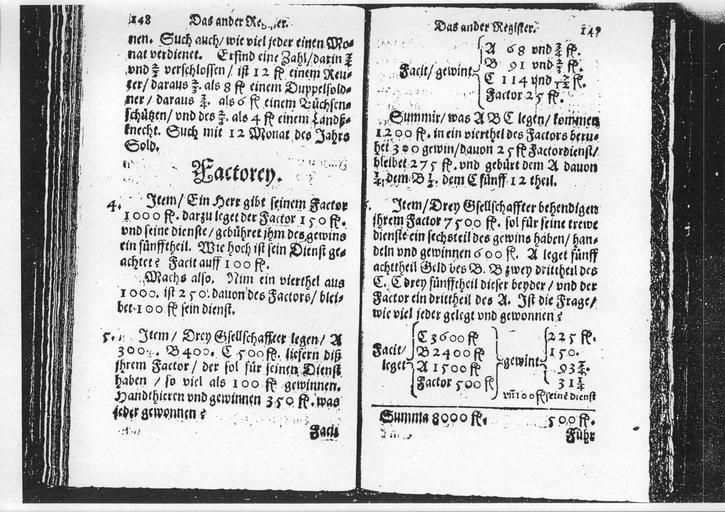 148 Das ander Register.
nen. Such auch/ wie viel jeder einen Mo⸗
nat verdienet. Erfind eine Zahl/ darin
vnd verschlossen/ ist 12 fl. einem Reu⸗
ter/ daraus als 8 fl. einem Duppelsöld⸗
ner/ daraus als 6 fl. einem Büchsen⸗
schützen/ vnd des als 4 fl. einem Landß⸗
knecht. Such mit 12 Monat des Jahrs
Sold.
Factorey.
4. Item/ Ein Herr gibt seinem Factor
1000 fl. darzu leget der Factor 150 fl.
vnd seine dienste/ gebühret jhm des gewins
ein fünfftheil. Wie hoch ist sein Dienst ge⸗
achtet? Facit auff 100 fl.
Machs also. Nim ein vierthel aus
1000. ist 250. dauon des Factors/ blei⸗
bet 100 fl. sein dienst.
5. Item/ Drey Gsellschaffter legen/ A
300. B 400. C 500 fl. liefern diß
jhrem Factor/ der sol für seinen Dienst
haben/ so viel als 100 fl. gewinnen.
Handthieren vnd gewinnen 350 fl. was
jeder gewonnen?
Facit
Das ander Register. 149
Facit/ gewint
A 68 vnd ¾ fl.
B 91 vnd ⅔ fl.
C 114 vnd 7/12 fl.
Factor 25 fl.
Summir/ was A B C legen/ kommen
1200 fl. in ein vierthel des Factors beru⸗
het 300 gewin/ dauon 25 fl. Factordienst/
bleibet 275 fl. vnd gebürt dem A dauon
¼ dem B ⅓. dem C fünff 12 theil.
Item/ Drey Gsellschaffter behendigen
jhrem Factor 7500 fl. sol für seine trewe
dienste ein sechsteil des gewins haben/ han⸗
deln vnd gewinnen 600 fl. A leget fünff
achttheil Geld des B. B zwey drittheil des
C. C drey fünfftheil dieser beyder/ vnd der
Factor ein drittheil des A. Ist die Frage/
wie viel jeder gelegt vnd gewonnen?
Facit/ leget
C 3600 fl.
B 2400 fl.
A 1500 fl.
Factor 500 fl.
gewint
225 fl.
150.
93¾.
31¼
vnd 100 fl. seine dienst
Summa 8000 fl. 500 fl.
Führ